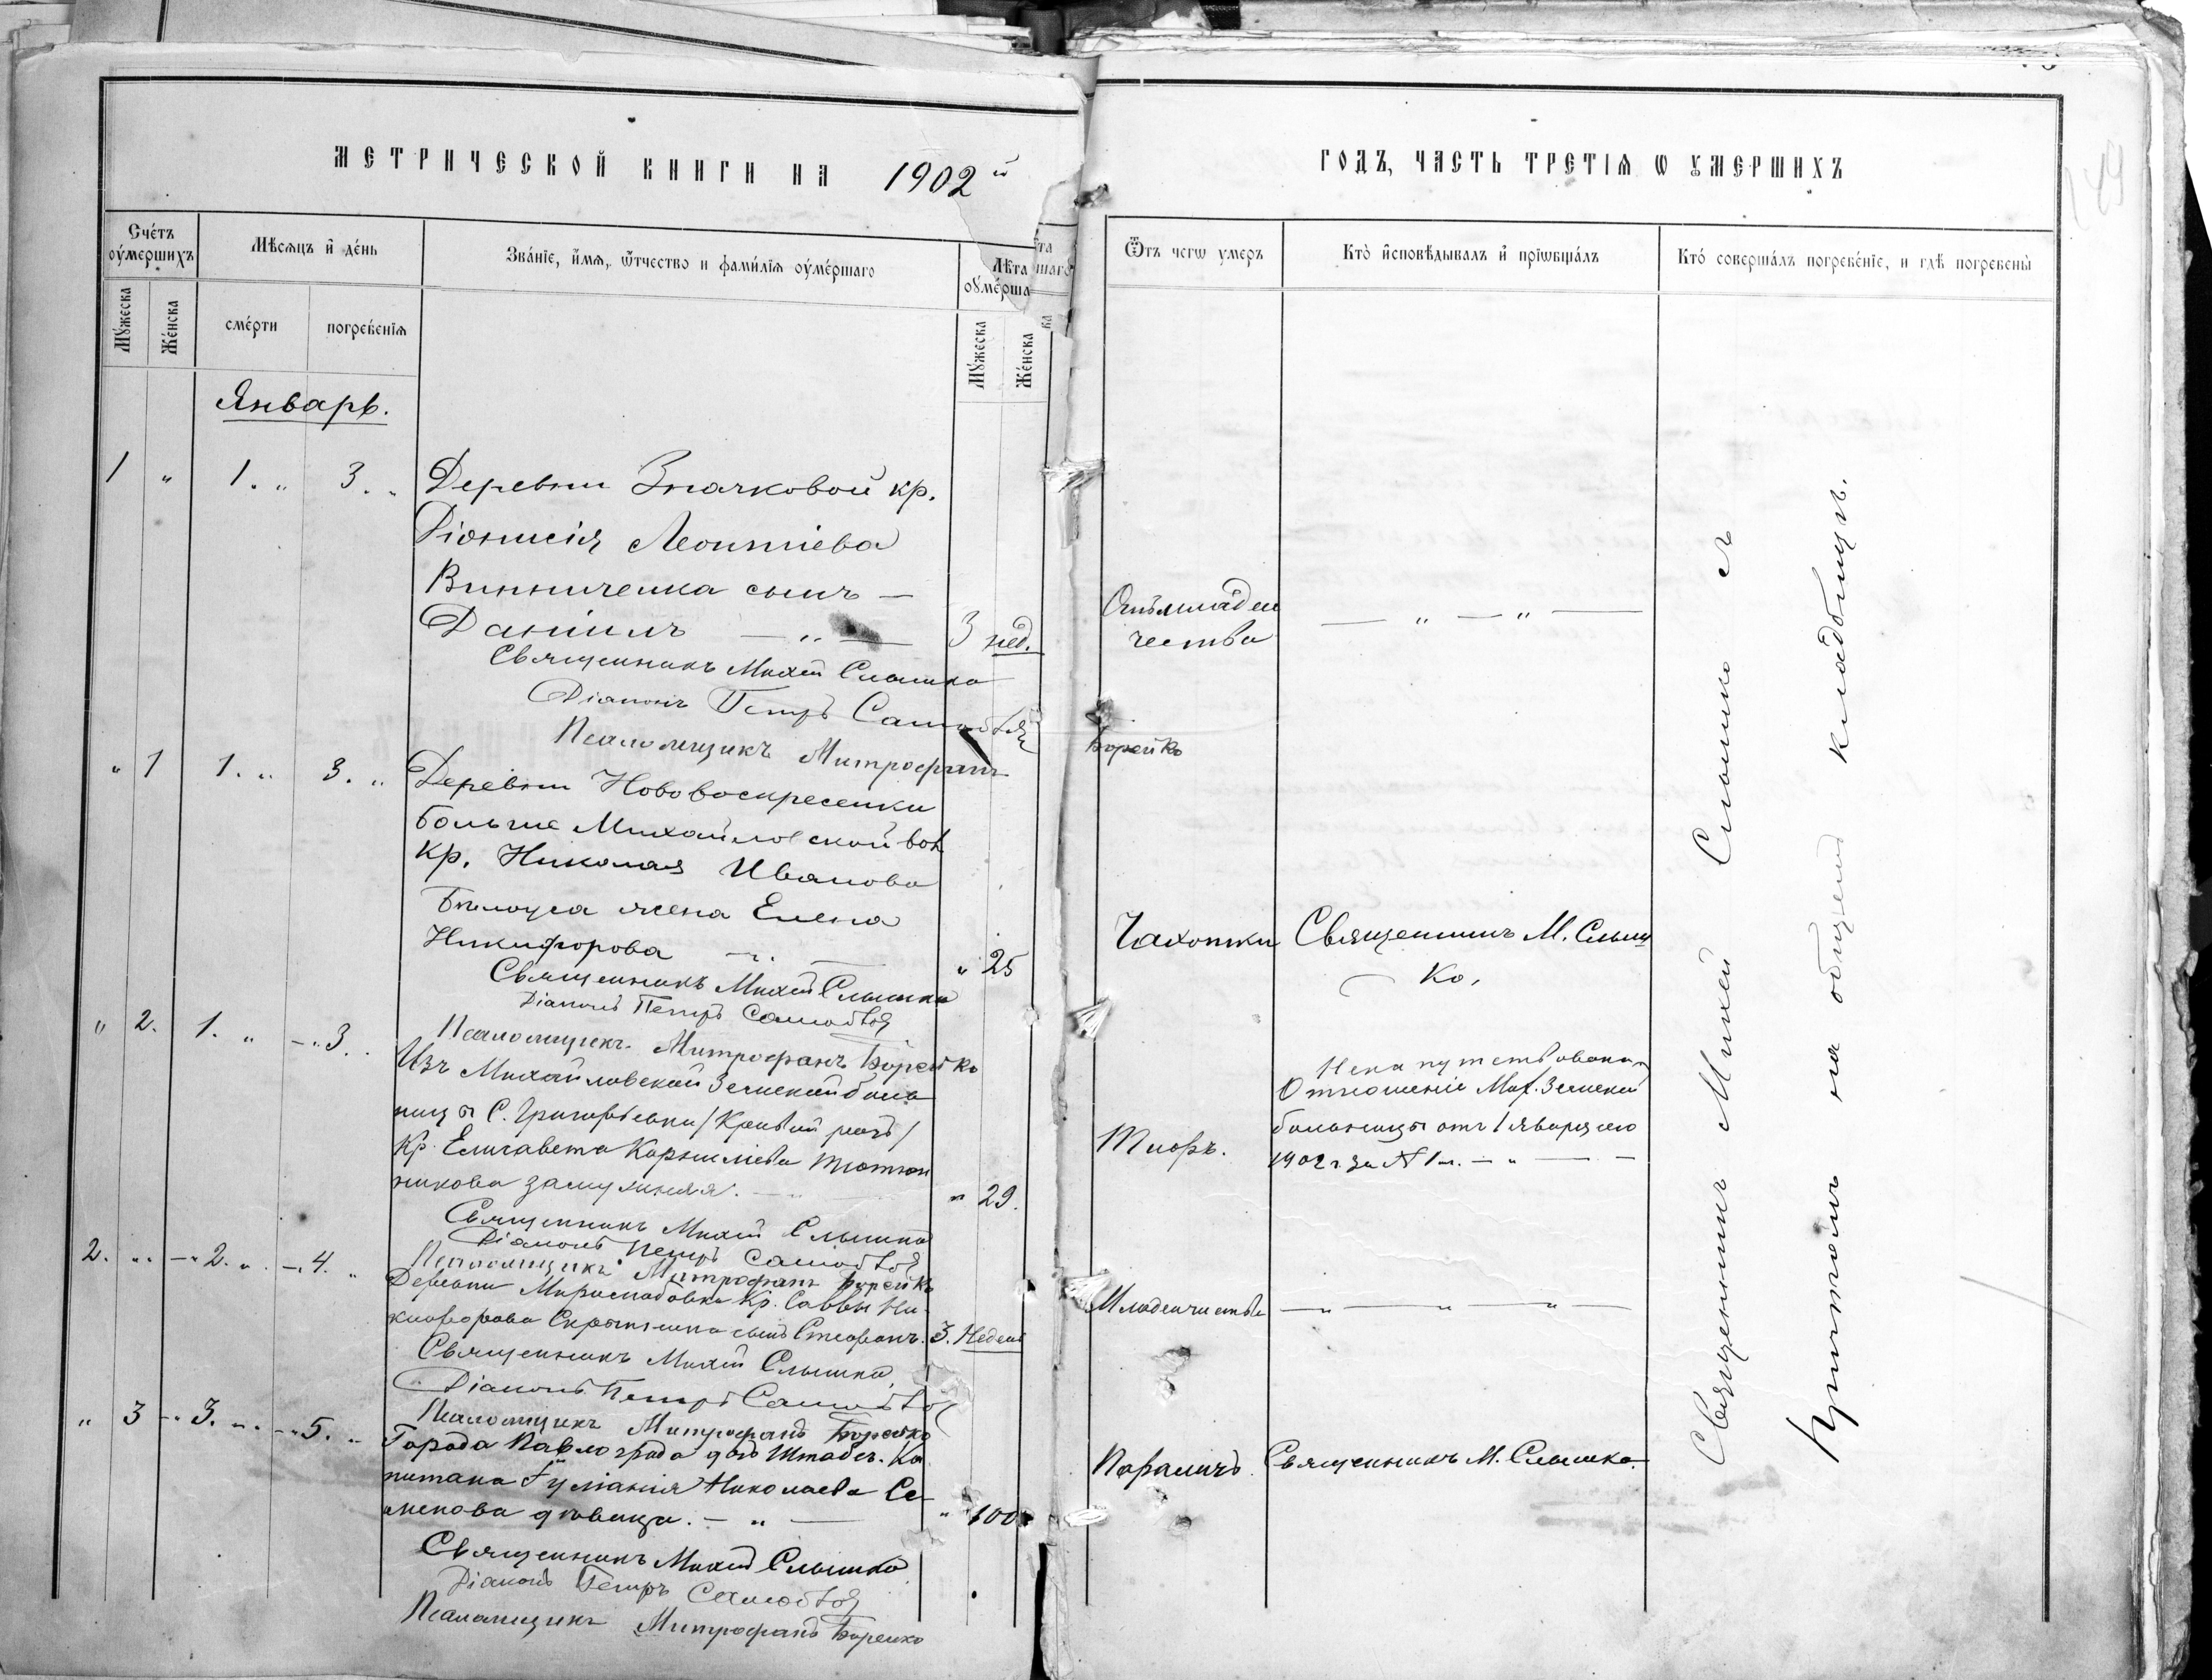 МЕТРИЧЕСКОЙ КНИГИ НА 1902й
Счетъ оумершихъ
Мѣсяцъ и день
Званіе, имя, отчество и фамилія оумершаго
Лѣта оумерша
Мужеска
Женска
смерти
погребенія
Мужеска
Женска
Январь.
1 " 1. " 3. "
Деревни Значковой кр.
Діонисія Леонтіева
Винниченка сынъ —
Даніилъ — " — 3 нед.
Священникъ Михей Слышко
Діаконъ Петръ
Псаломщикъ Митрофанъ Борейко
" 1 1. " 3. "
Деревни Нововоскресенки
Больше Михайловской вол
кр. Николая Иванова
Бѣлоуса жена Елена
Никифорова — " — " 25
Священникъ Михей Слышко
Діаконъ Петръ
Псаломщикъ Митрофанъ Борейко
" 2. 1. " — " 3.
Изъ Михайловской Земской боль
ницы С. Григорьевки /Кривой рогъ/
Кр. Елисавета Корниліева
никова замужняя. — " 29.
Священникъ Михей Слышко
Діаконъ Петръ
Псаломщикъ Митрофанъ Борейко
2. " — " 2. " — 4. "
Деревни Кр. Саввы Ни-
кифорова сынъ Стефанъ. 3. Недели
Священникъ Михей Слышко
Діаконъ Петръ
Псаломщикъ Митрофанъ Борейко
" 3 — " 3. " — " 5. "
Города Павлограда дочь Штабсъ-Ка
питана Іуліанія Николаева Се-
менова дѣвица. — " — " 100
Священникъ Михей Слышко
Діаконъ Петръ
Псаломщикъ Митрофанъ Борейко
ГОДЪ, ЧАСТЬ ТРЕТІЯ Ѡ УМЕРШИХЪ
Ѿтъ чегѡ умеръ
Кто исповѣдывалъ и прїѡбщалъ
Кто совершалъ погребеніе, и гдѣ погребены
Отъ младен
чества
— " — " —
Чахотки
Священникъ М. Слыш
ко,
Тифъ.
Отношеніе Мих. Земской
больницы отъ 1 января сего
1902 г за № 1м. — " — —
Младенчества
— " — " — " —
Параличъ.
Священникъ М. Слышко.
Священникъ Михей Слышко съ
Причтомъ на общемъ кладбищѣ.